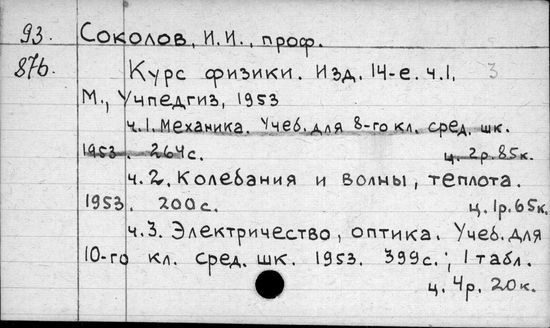 93. Соколов, И.И., проф.
87б. Курс физики. Изд. 14-е. ч.1. 3
М., Учпедгиз, 1953
ч.1. Механика. Учеб. для 8-го кл. сред. шк.
1953. 264 с. ц. 2р. 85к.
ч.2. Колебания и волны, теплота.
1953. 200 с. ц. 1р. 65к.
ч.3. Электричество, оптика. Учеб. для
10-го кл. сред. шк. 1953. 399с.; 1 табл.
ц. 4р. 20к.